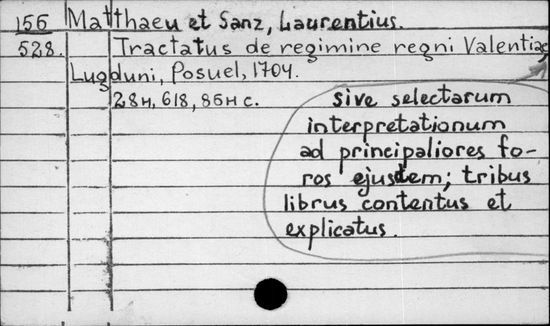 156 Matthaeu et Sanz, Laurentius.
528. Tractatus de regimine regni Valentiae
Lugduni, Posuel, 1704.
28н, 618, 86н с.
sive selectarum
interpretationum
ad principaliores fo-
ros ejustem; tribus
librus contentus et
explicatus.